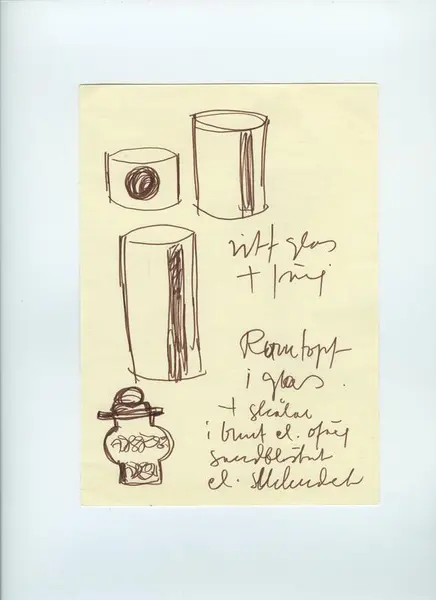 vitt glas
+ färg
Romtopf
i glas.
+ skålar
i brunt el. ofärg
sandbläst
el.